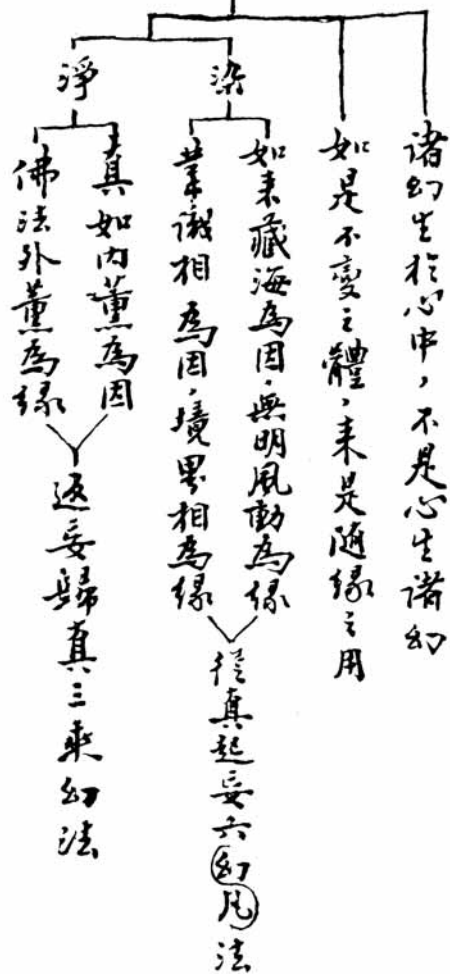 諸幻生扵心中，不是心生諸幻
如是不變之體，来是隨緣之用
染
如来藏海為因，無明風動為緣
業識相為因，境界相為緣
從真起妄六幻凡法
淨
真如内薰為因
佛法外薰為緣
返妄歸真三乘幻法